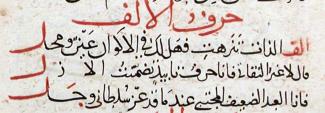 حرف الألف
ألف الذات تنزهت فهل لك في الاكوان عين ومحل
قال لا غير التفاتي فانا حرف تابيد تضمنت الازل
فانا العبد الضعيف المجتبى عندما قد عز سلطاني وجل